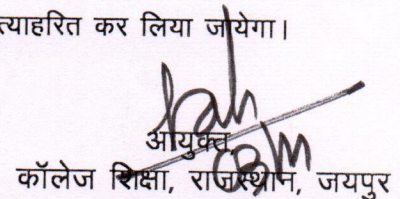 त्याहरित कर लिया जायेगा।
आयुक्त
कॉलेज शिक्षा, राजस्थान, जयपुर